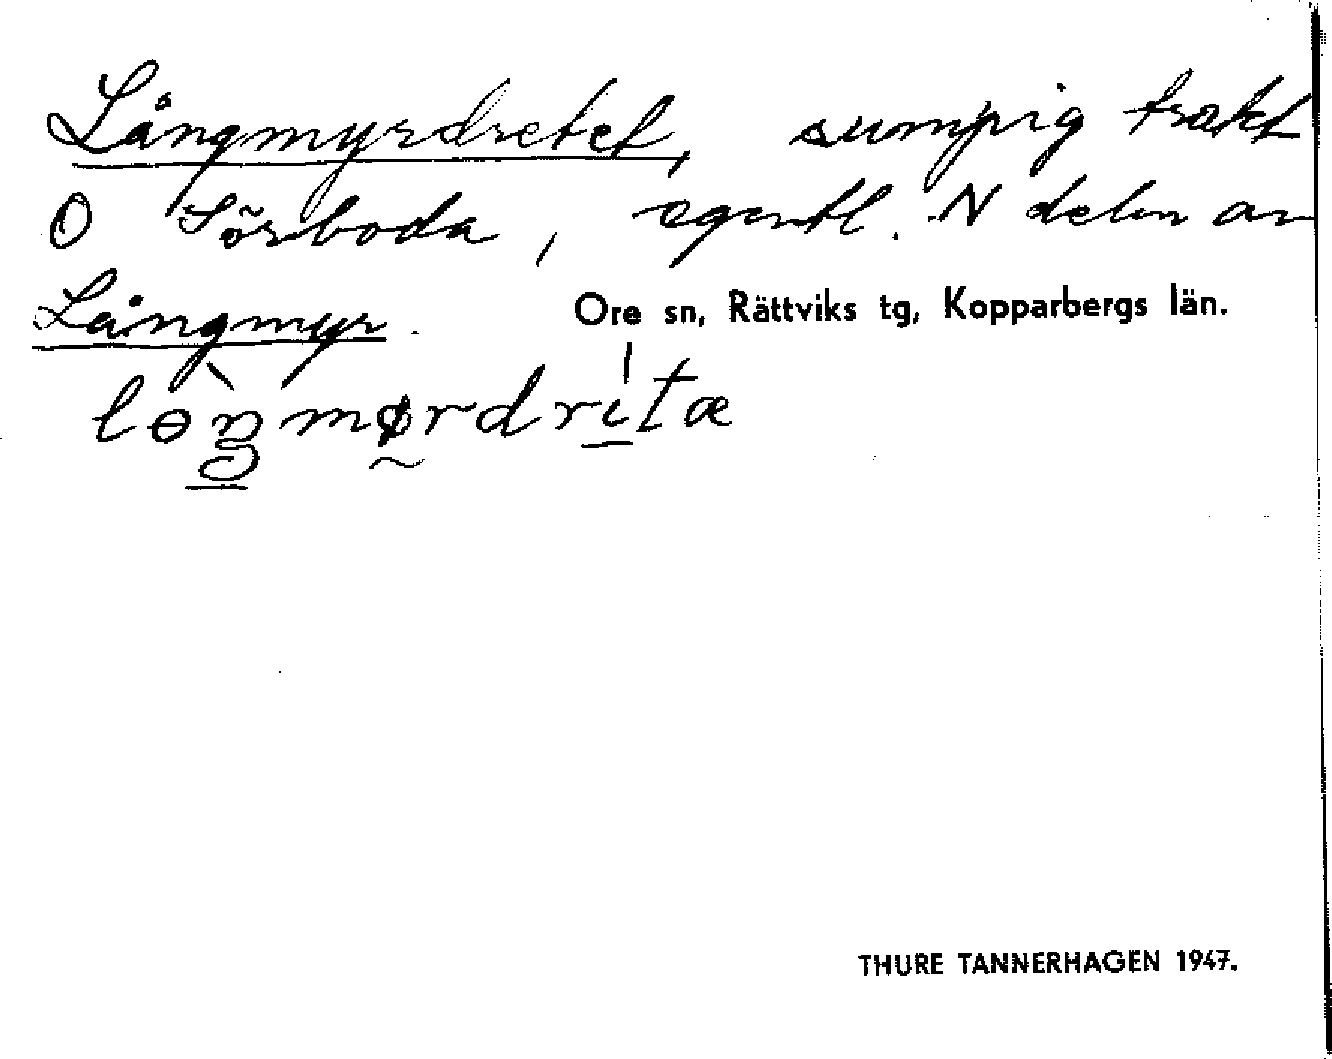 Långmyrdretet, sumpig trakt
O Sörboda, egentl. N delen av
Långmyr. Ore sn, Rättviks tg, Kopparbergs län.
lɵŋmørdritæ
THURE TANNERHAGEN 1947.